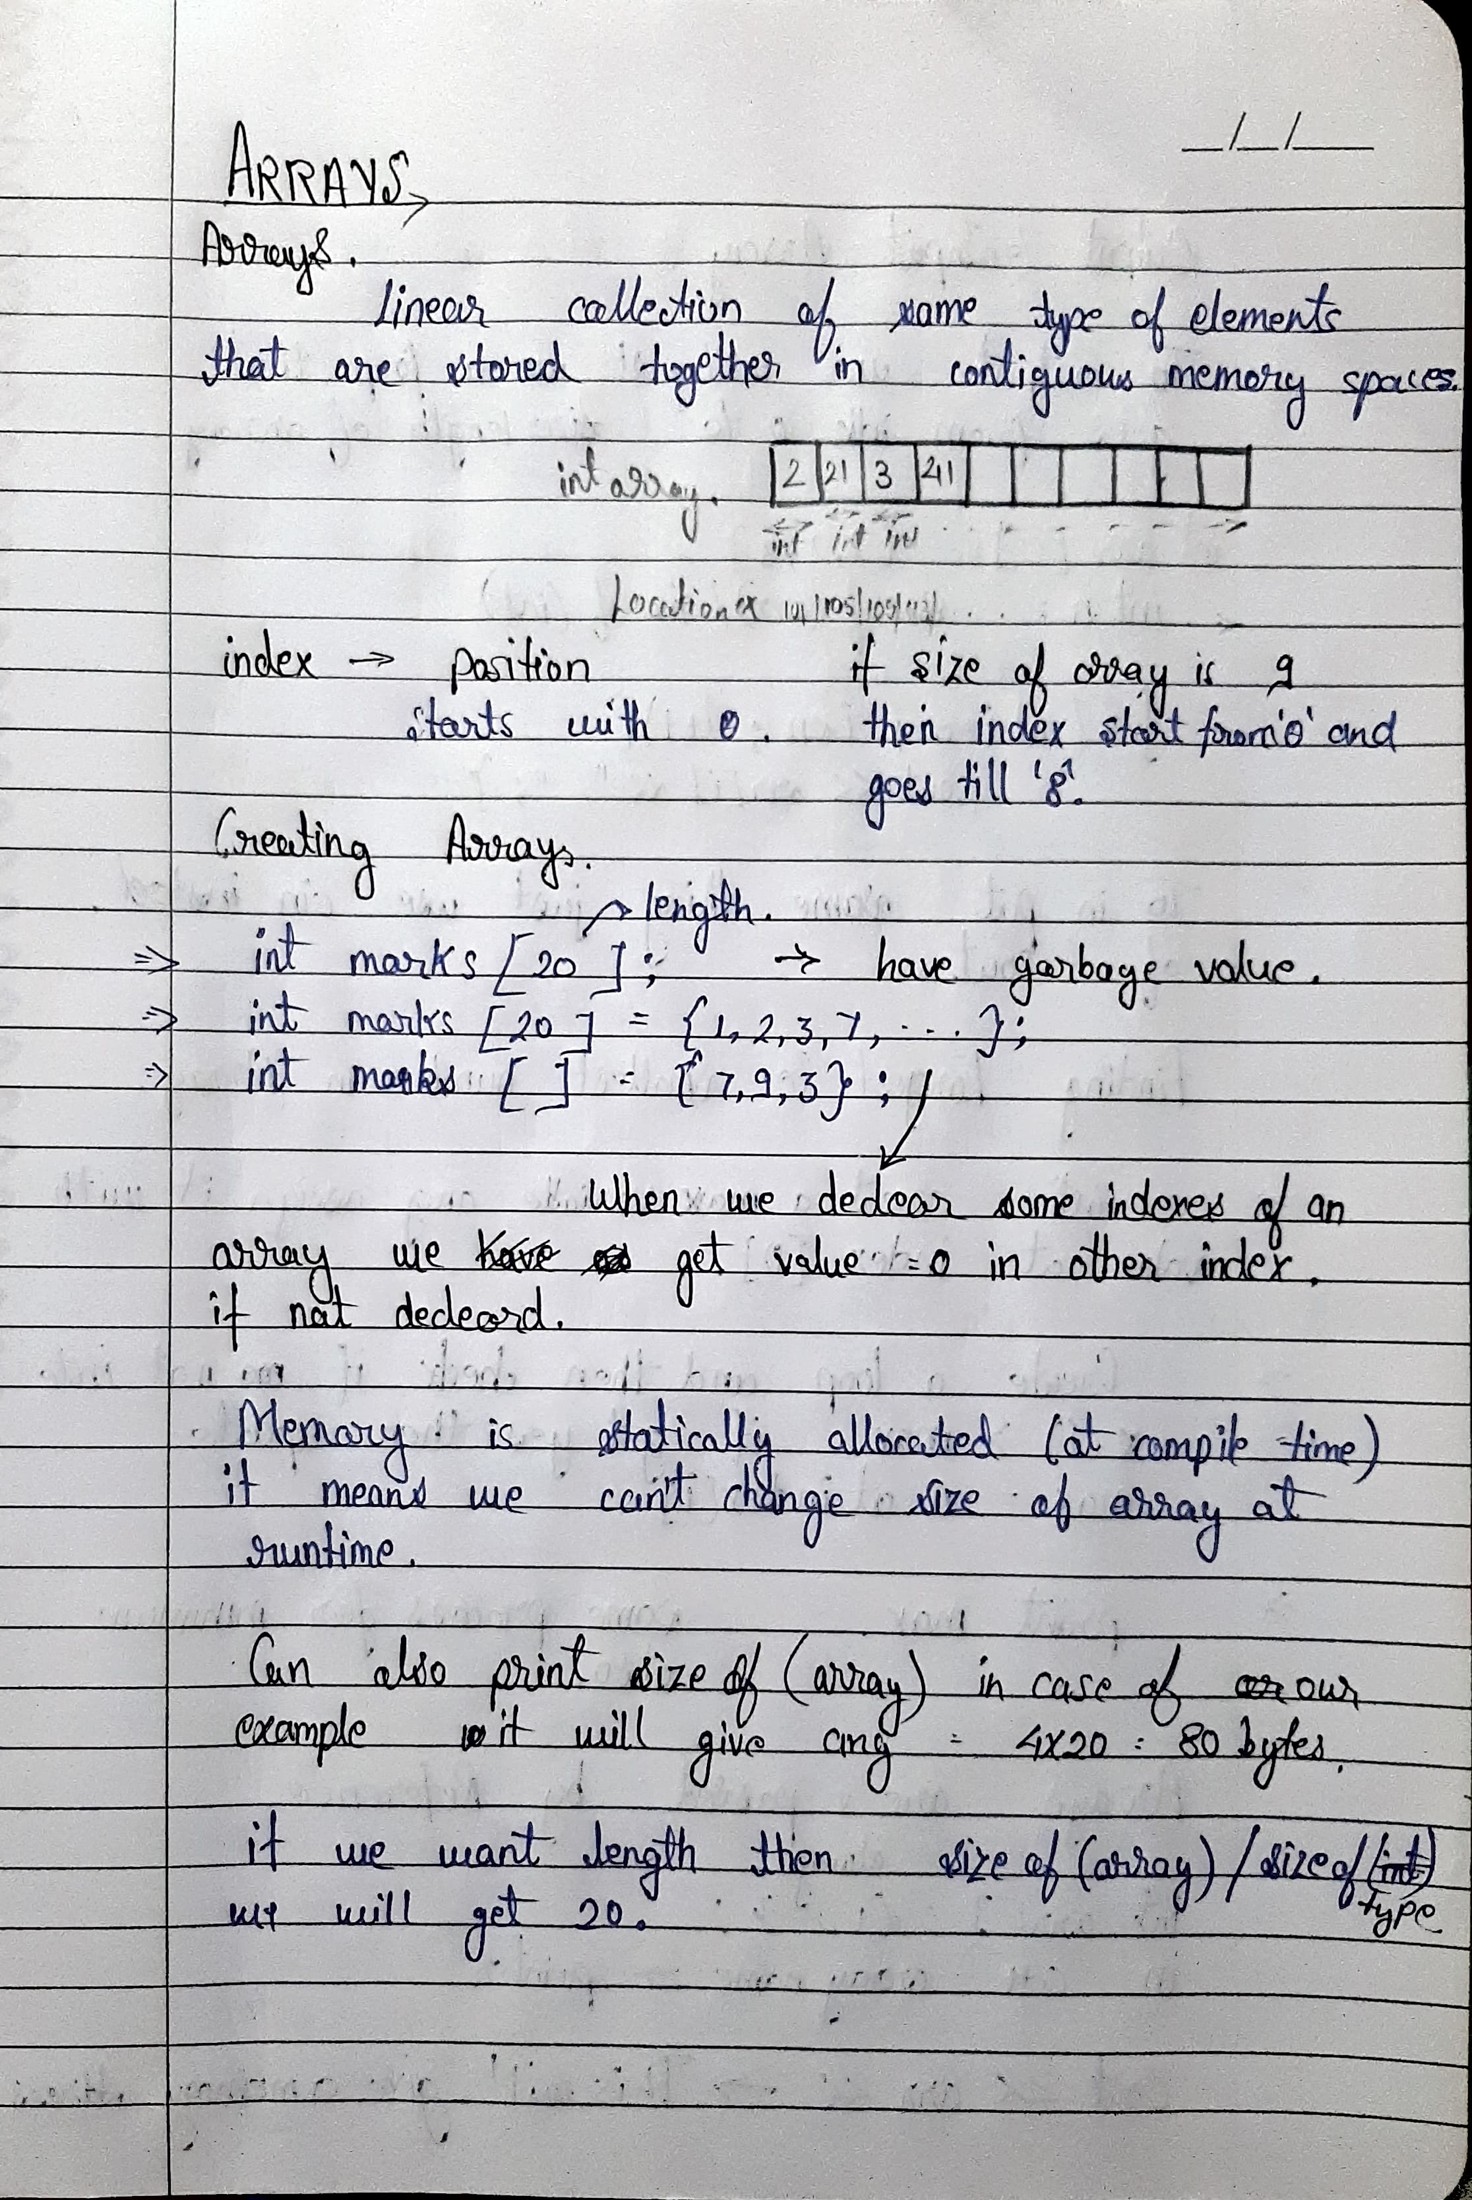 __/__/____
ARRAYS
Arrays.
Linear collection of same type of elements
that are stored together in contiguous memory spaces.
int array. 2 21 3 241
int int int
Location 101/105/109/113/
index → position if size of array is 9
starts with 0. then index start from '0' and
goes till '8'.
Creating Arrays.
length.
⇒ int marks [20]; → have garbage value.
⇒ int marks [20] = {1, 2, 3, 7, ....};
⇒ int marks [ ] = {7, 9, 3};
When we declear some indexes of an
array we have get value = 0 in other index.
if not decleard.
Memory is statically allocated (at compile time)
it means we can't change size of array at
runtime.
Can also print size of (array) in case of our
example it will give ang = 4x20 = 80 bytes.
if we want length then size of (array) / size of (int)
type
we will get 20.